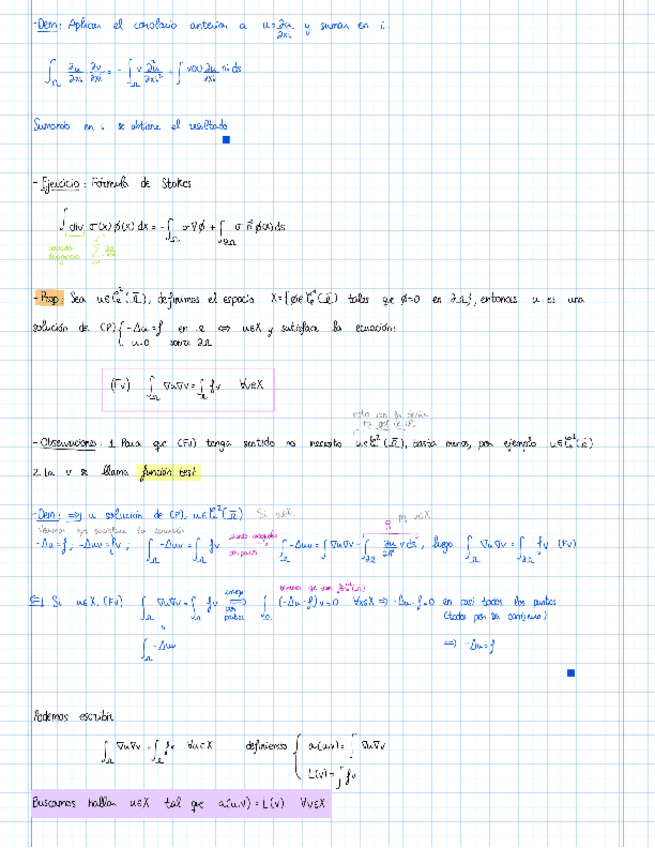 - Dem: Aplicar el corolario anterior a u = ∂u/∂xi y sumar en i.
∫_Ω ∂u/∂xi ∂v/∂xi = - ∫_Ω v ∂²u/∂xi² + ∫ v(x) ∂u/∂xi ni ds
Sumando en i se obtiene el resultado
- Ejercicio: Fórmula de Stokes
∫ div σ(x) ϕ(x) dx = - ∫_Ω σ∇ϕ + ∫_∂Ω σ n⃗ ϕ(x) ds
- Prop: Sea u∈C²(Ω̄), definimos el espacio X={ϕ∈C¹(Ω̄) tales que ϕ=0 en ∂Ω}, entonces u es una
solución de (P) { -Δu=f en Ω ⇔ u∈X y satisface la ecuación:
u=0 sobre ∂Ω
(Fv) ∫_Ω ∇u∇v = ∫_Ω fv ∀v∈X
- Observaciones: 1. Para que (Fv) tenga sentido no necesito u∈C²(Ω̄), basta menos, por ejemplo u∈C¹(Ω̄)
2. La v se llama función test
- Dem: ⇒) u solución de (P), u∈C²(Ω̄) Si v∈X
Veamos que satisface la ecuación
-Δu=f, -Δuv=fv; ∫_Ω -Δuv = ∫_Ω fv usando integración por partes ∫_Ω -Δuv = ∫ ∇u∇v - ∫_∂Ω ∂u/∂n⃗ v ds, luego ∫_Ω ∇u∇v = ∫_Ω fv (Fv)
⇐) Si u∈X, (Fv) ∫_Ω ∇u∇v = ∫_Ω fv ⇒ integr por partes ∫_Ω (-Δu-f)v=0 ∀v∈X ⇒ -Δu-f=0 en casi todos los puntos
(todos por ser continuo)
∫_Ω -Δuv
⇒ -Δu=f
Podemos escribir
∫_Ω ∇u∇v = ∫_Ω fv ∀v∈X definiendo { a(u,v)= ∫ ∇u∇v
L(v)= ∫ fv
Buscamos hallar u∈X tal que a(u,v)=L(v) ∀v∈X